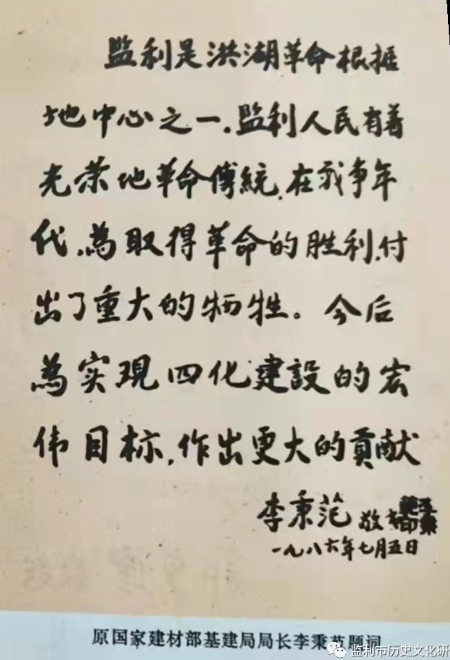 监利是洪湖革命根据
地中心之一.监利人民有着
光荣地革命傅統.在战争年
代.為取得革命的胜利.付
出了重大的牺牲。今后
為实現四化建設的宏
伟目标,作出更大的貢献
李秉范 敬
一九八六年七月五日
原国家建材部基建局局长李秉范题词
监利市历史文化研